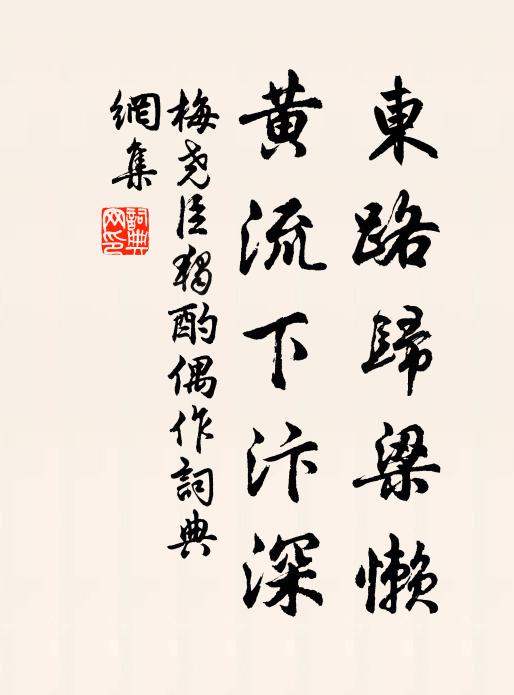 東路歸梁懶
黃流下汴深
梅尧臣獨酌偶作詞典
網集
詞典
网印